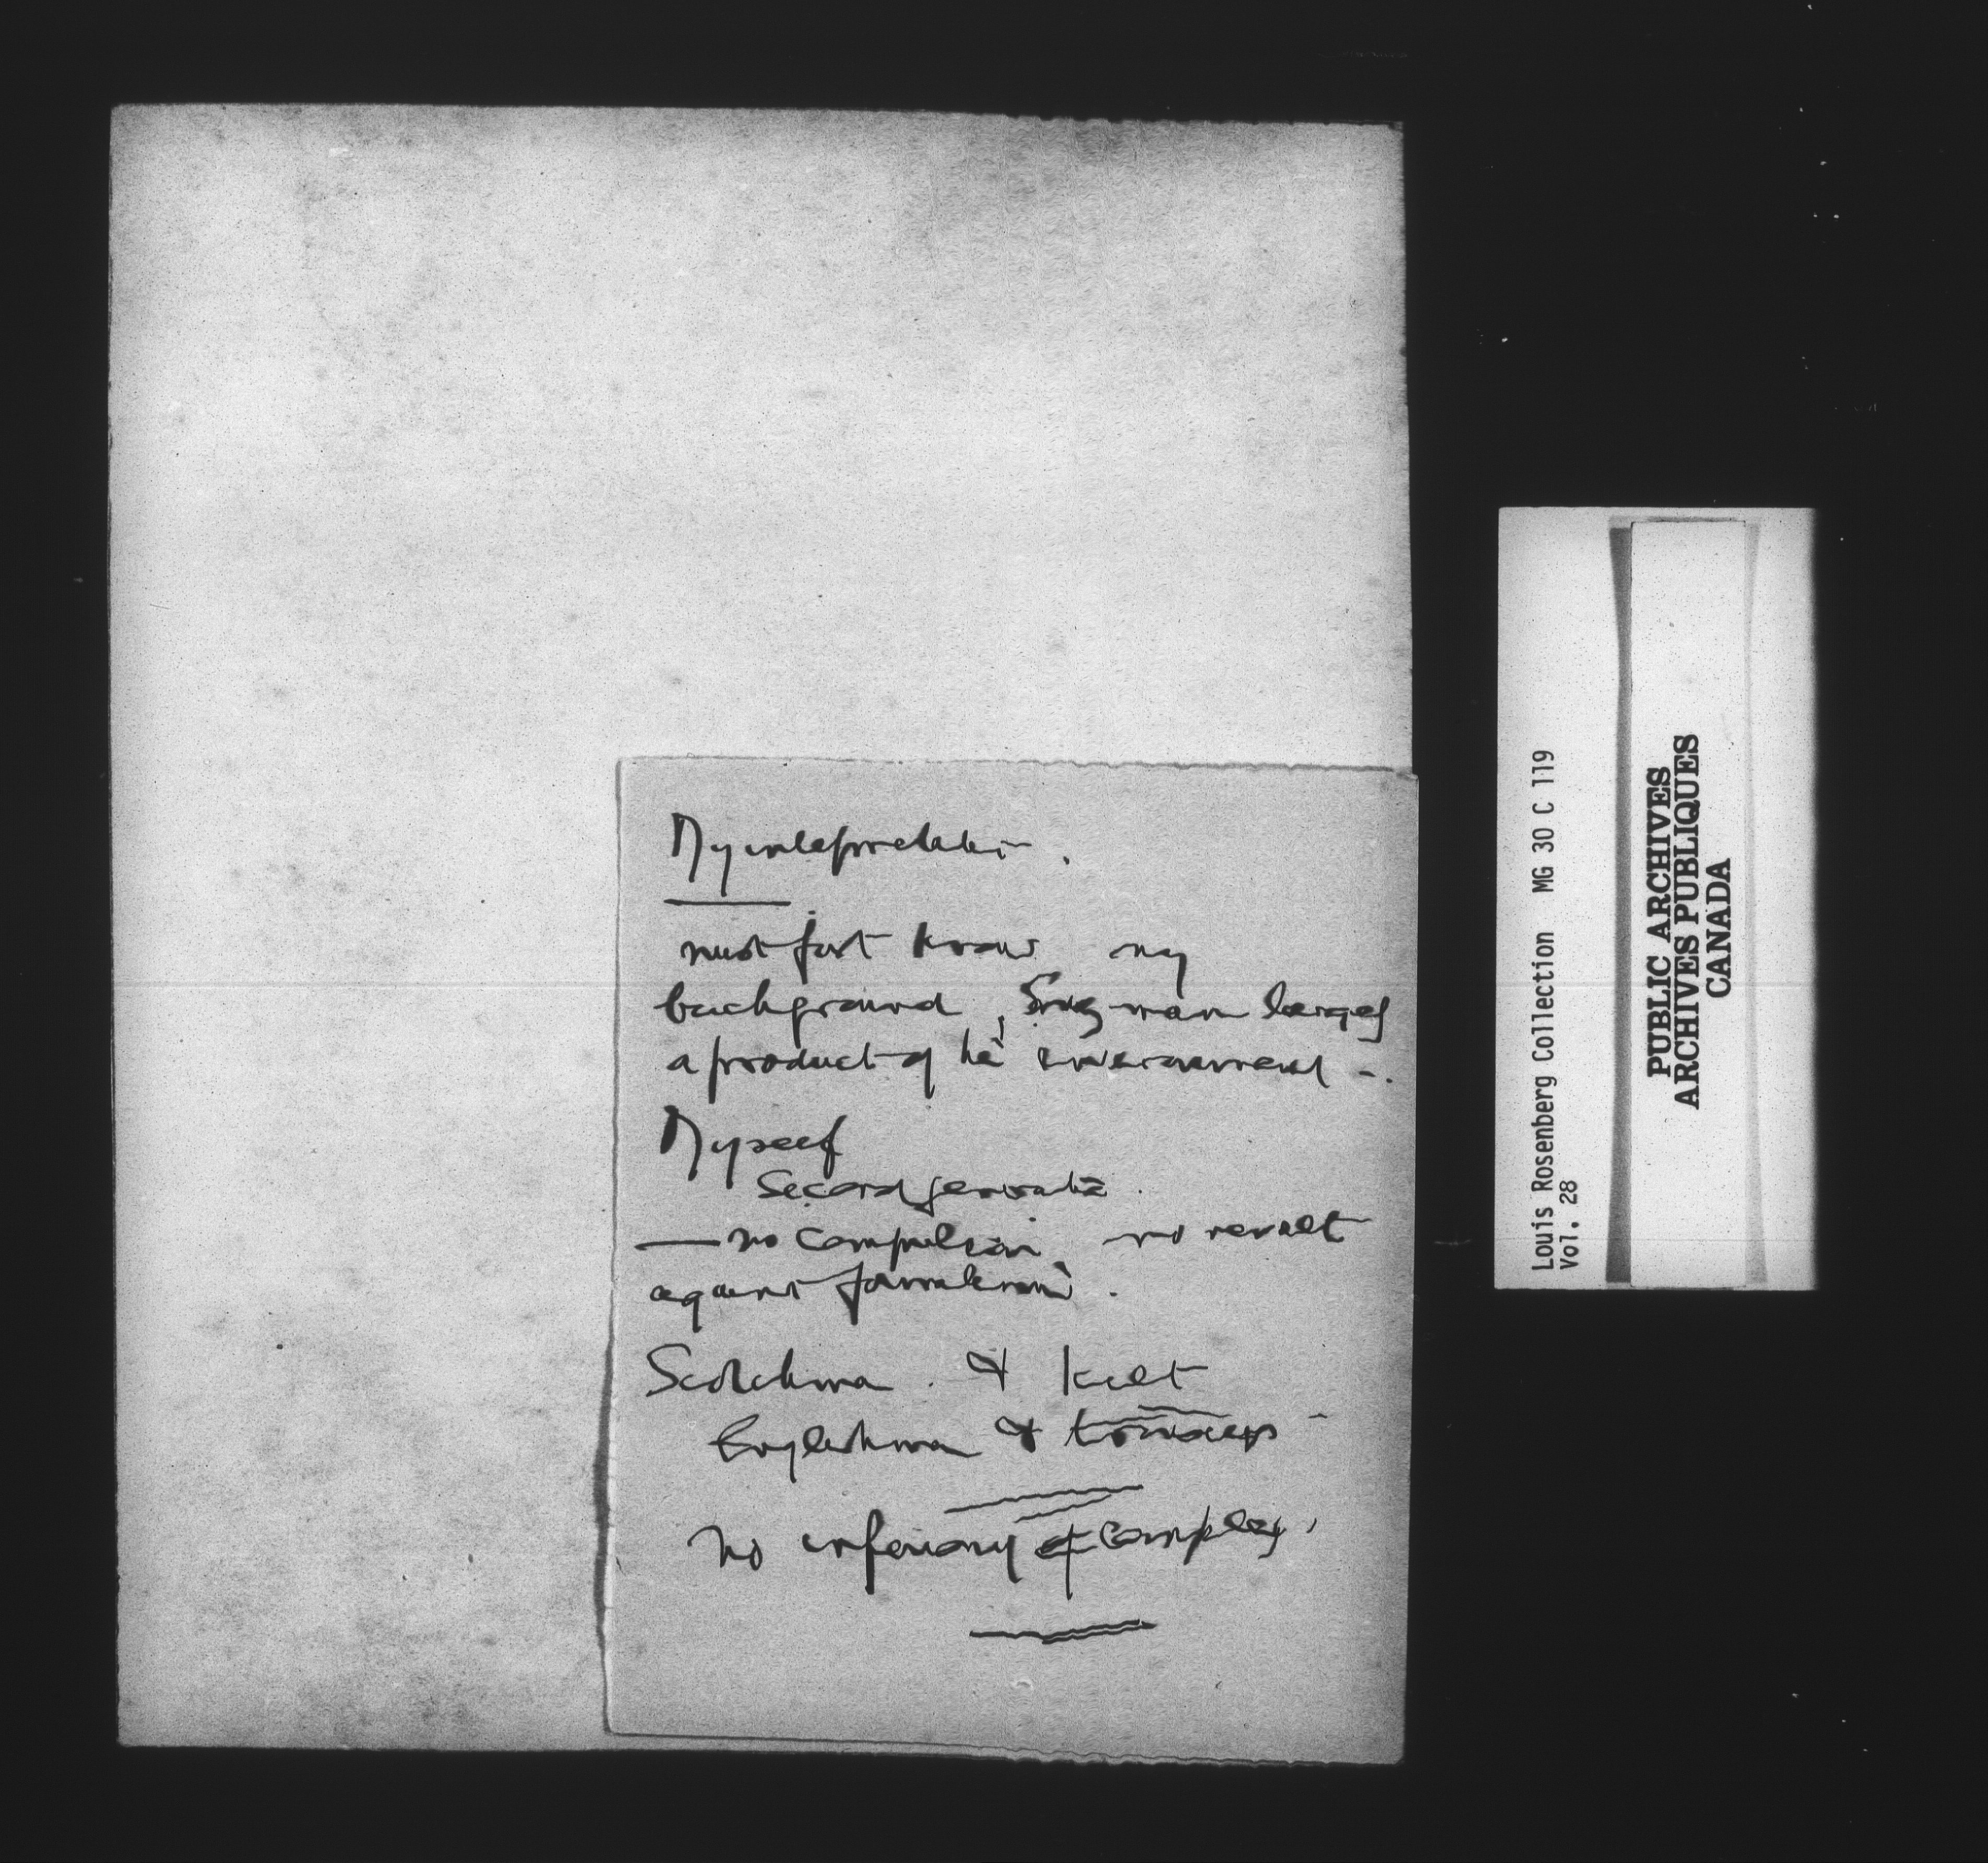 My interpretation.
must first know my
background, Every man largely
a product of his environment -.
Myself
Second generation.
— no compulsion, no revolt
against formalism.
Scotchman . & kilt
Englishman & trousers -
No inferiority complex,
Louis Rosenberg Collection MG 30 C 119
Vol. 28
PUBLIC ARCHIVES
ARCHIVES PUBLIQUES
CANADA